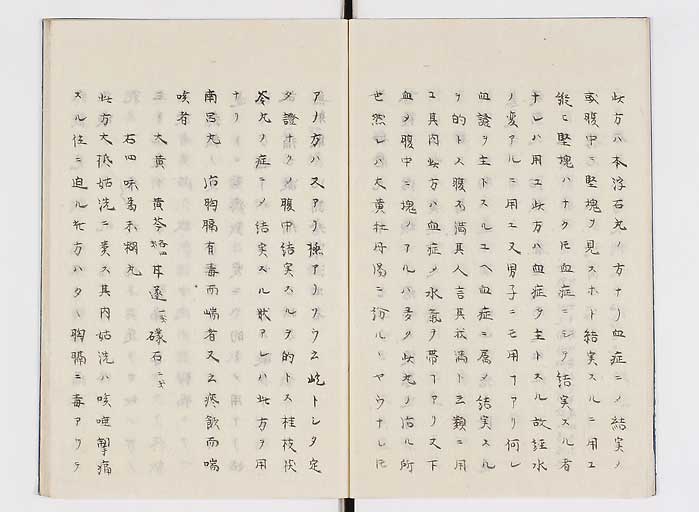 此方ハ本浮石丸ノ方ナリ血症ニノ結実ノ
或腹中ニ堅塊ヲ見スホト結実スルニ用ユ
縦ヒ堅塊ハナク𪜈血症ニシテ結実スル者
ナレハ用ユ此方ハ血症ヲ主トスル故経水
ノ変アルニ用ユ又男子ニモ用ヿアリ何レ
血證ヲ主トスルユヘ血症ニ属ノ結実スル
ヲ的トス腹不満其人言我満ト云類ニ用
ユ其内此方ハ血症ノ水氣ヲ帯ヿアリ又下
血ノ腹中ニ塊ノアルハ多ク此丸ノ治ル所
也然レハ大黄牡丹湯ニ
アノ方ハスアリ
タ證ナク腹中結実スルヲ的トス桂枝茯
苓丸ノ症ニノ結実スル状アレハ此方ヲ用
ナリ
南呂丸ノ治胸膈有毒而喘者又云痰飲而喘
咳者
大黄 黄芩 甘遂 礞石
右四味為末糊丸
此方大抵姑洗ニ類ス其内姑洗ハ咳唾撃痛
スル位ニ迫ル此方ハタヽ胸膈ニ毒アリテ